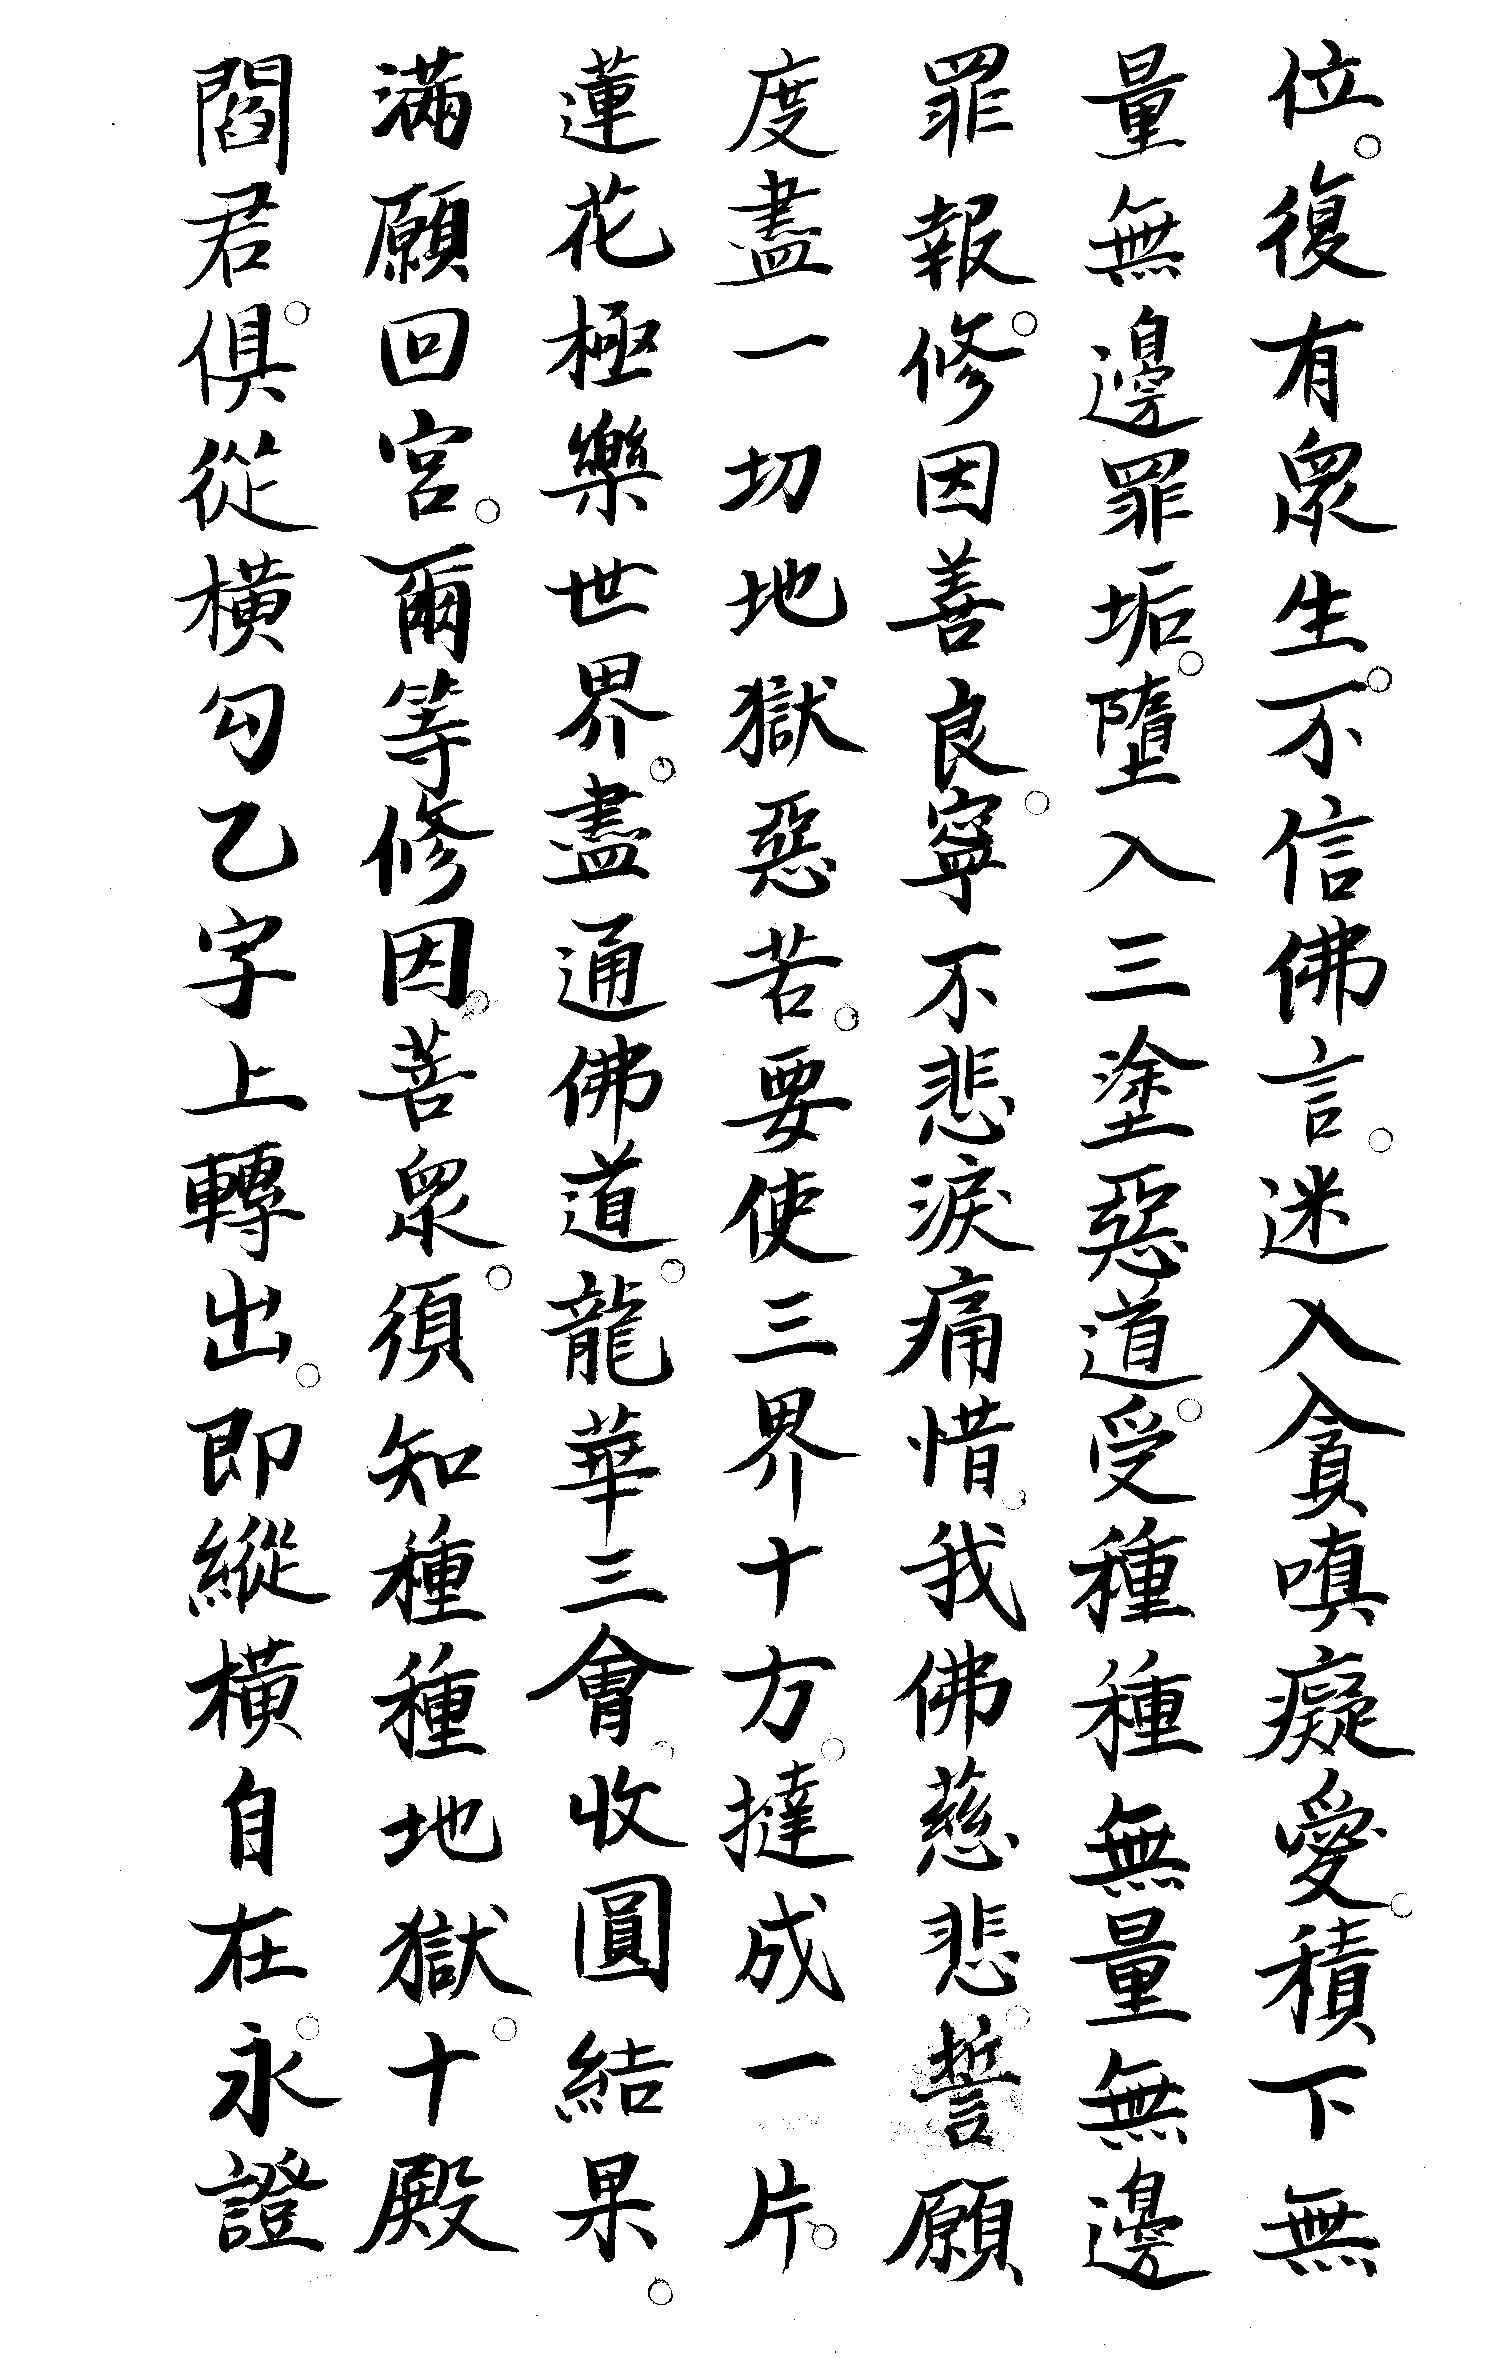 位。復有衆生。不信佛言。迷入貪嗔癡愛。積下無
量無邊罪垢。墮入三塗惡道。受種種無量無邊
罪報。修因善良。寧不悲淚痛惜。我佛慈悲。誓願
度盡一切地獄惡苦。要使三界十方。撻成一片。
蓮花極樂世界。盡通佛道。龍華三會。收圓結果。
滿願回宮。爾等修因。菩衆。須知種種地獄。十殿
閻君。俱從橫勾乙字上轉出。即縱橫自在。永證